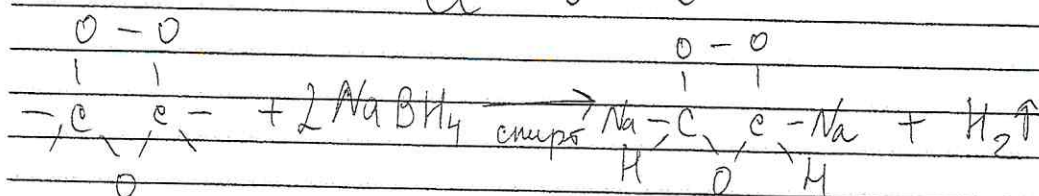 O - O O - O
- C C - + 2 NaBH4 → спирт Na - C C - Na + H2↑
H O H
O